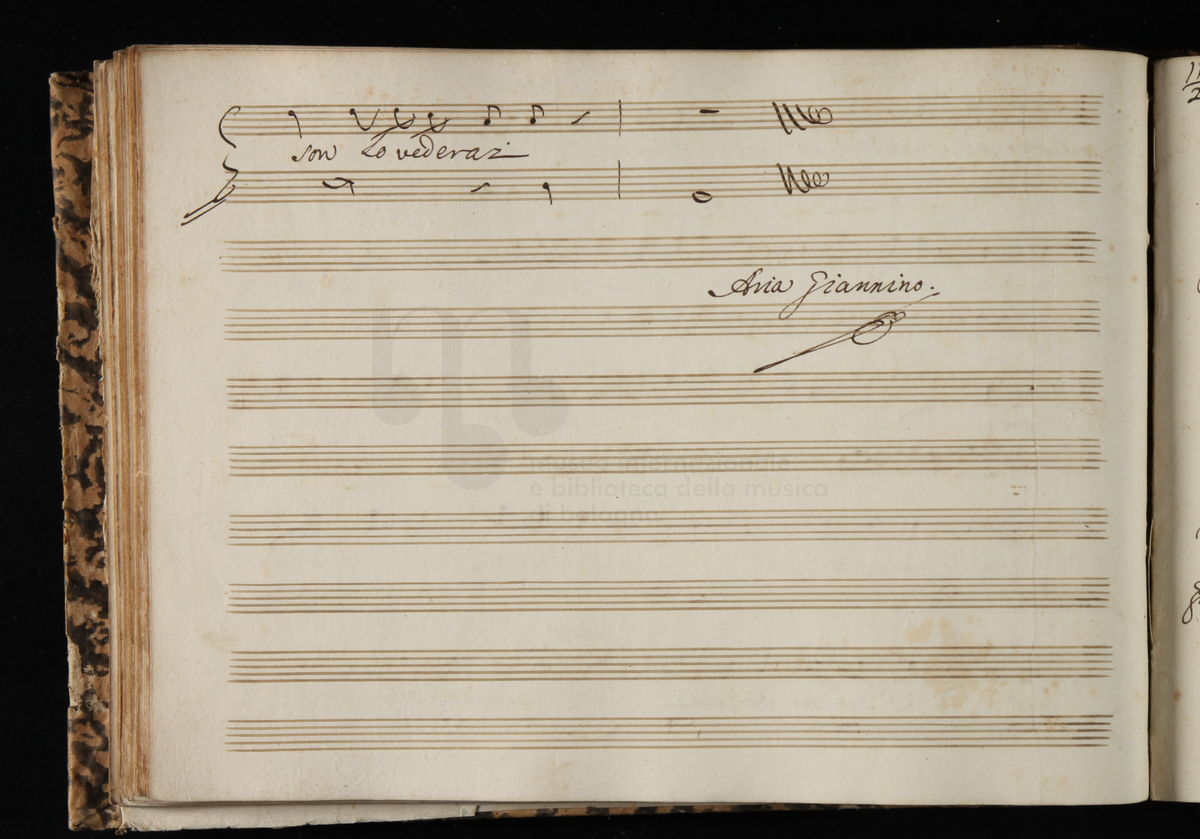 son lo vederai
Aria Giannino.
museo internazionale
e biblioteca della musica
di bologna